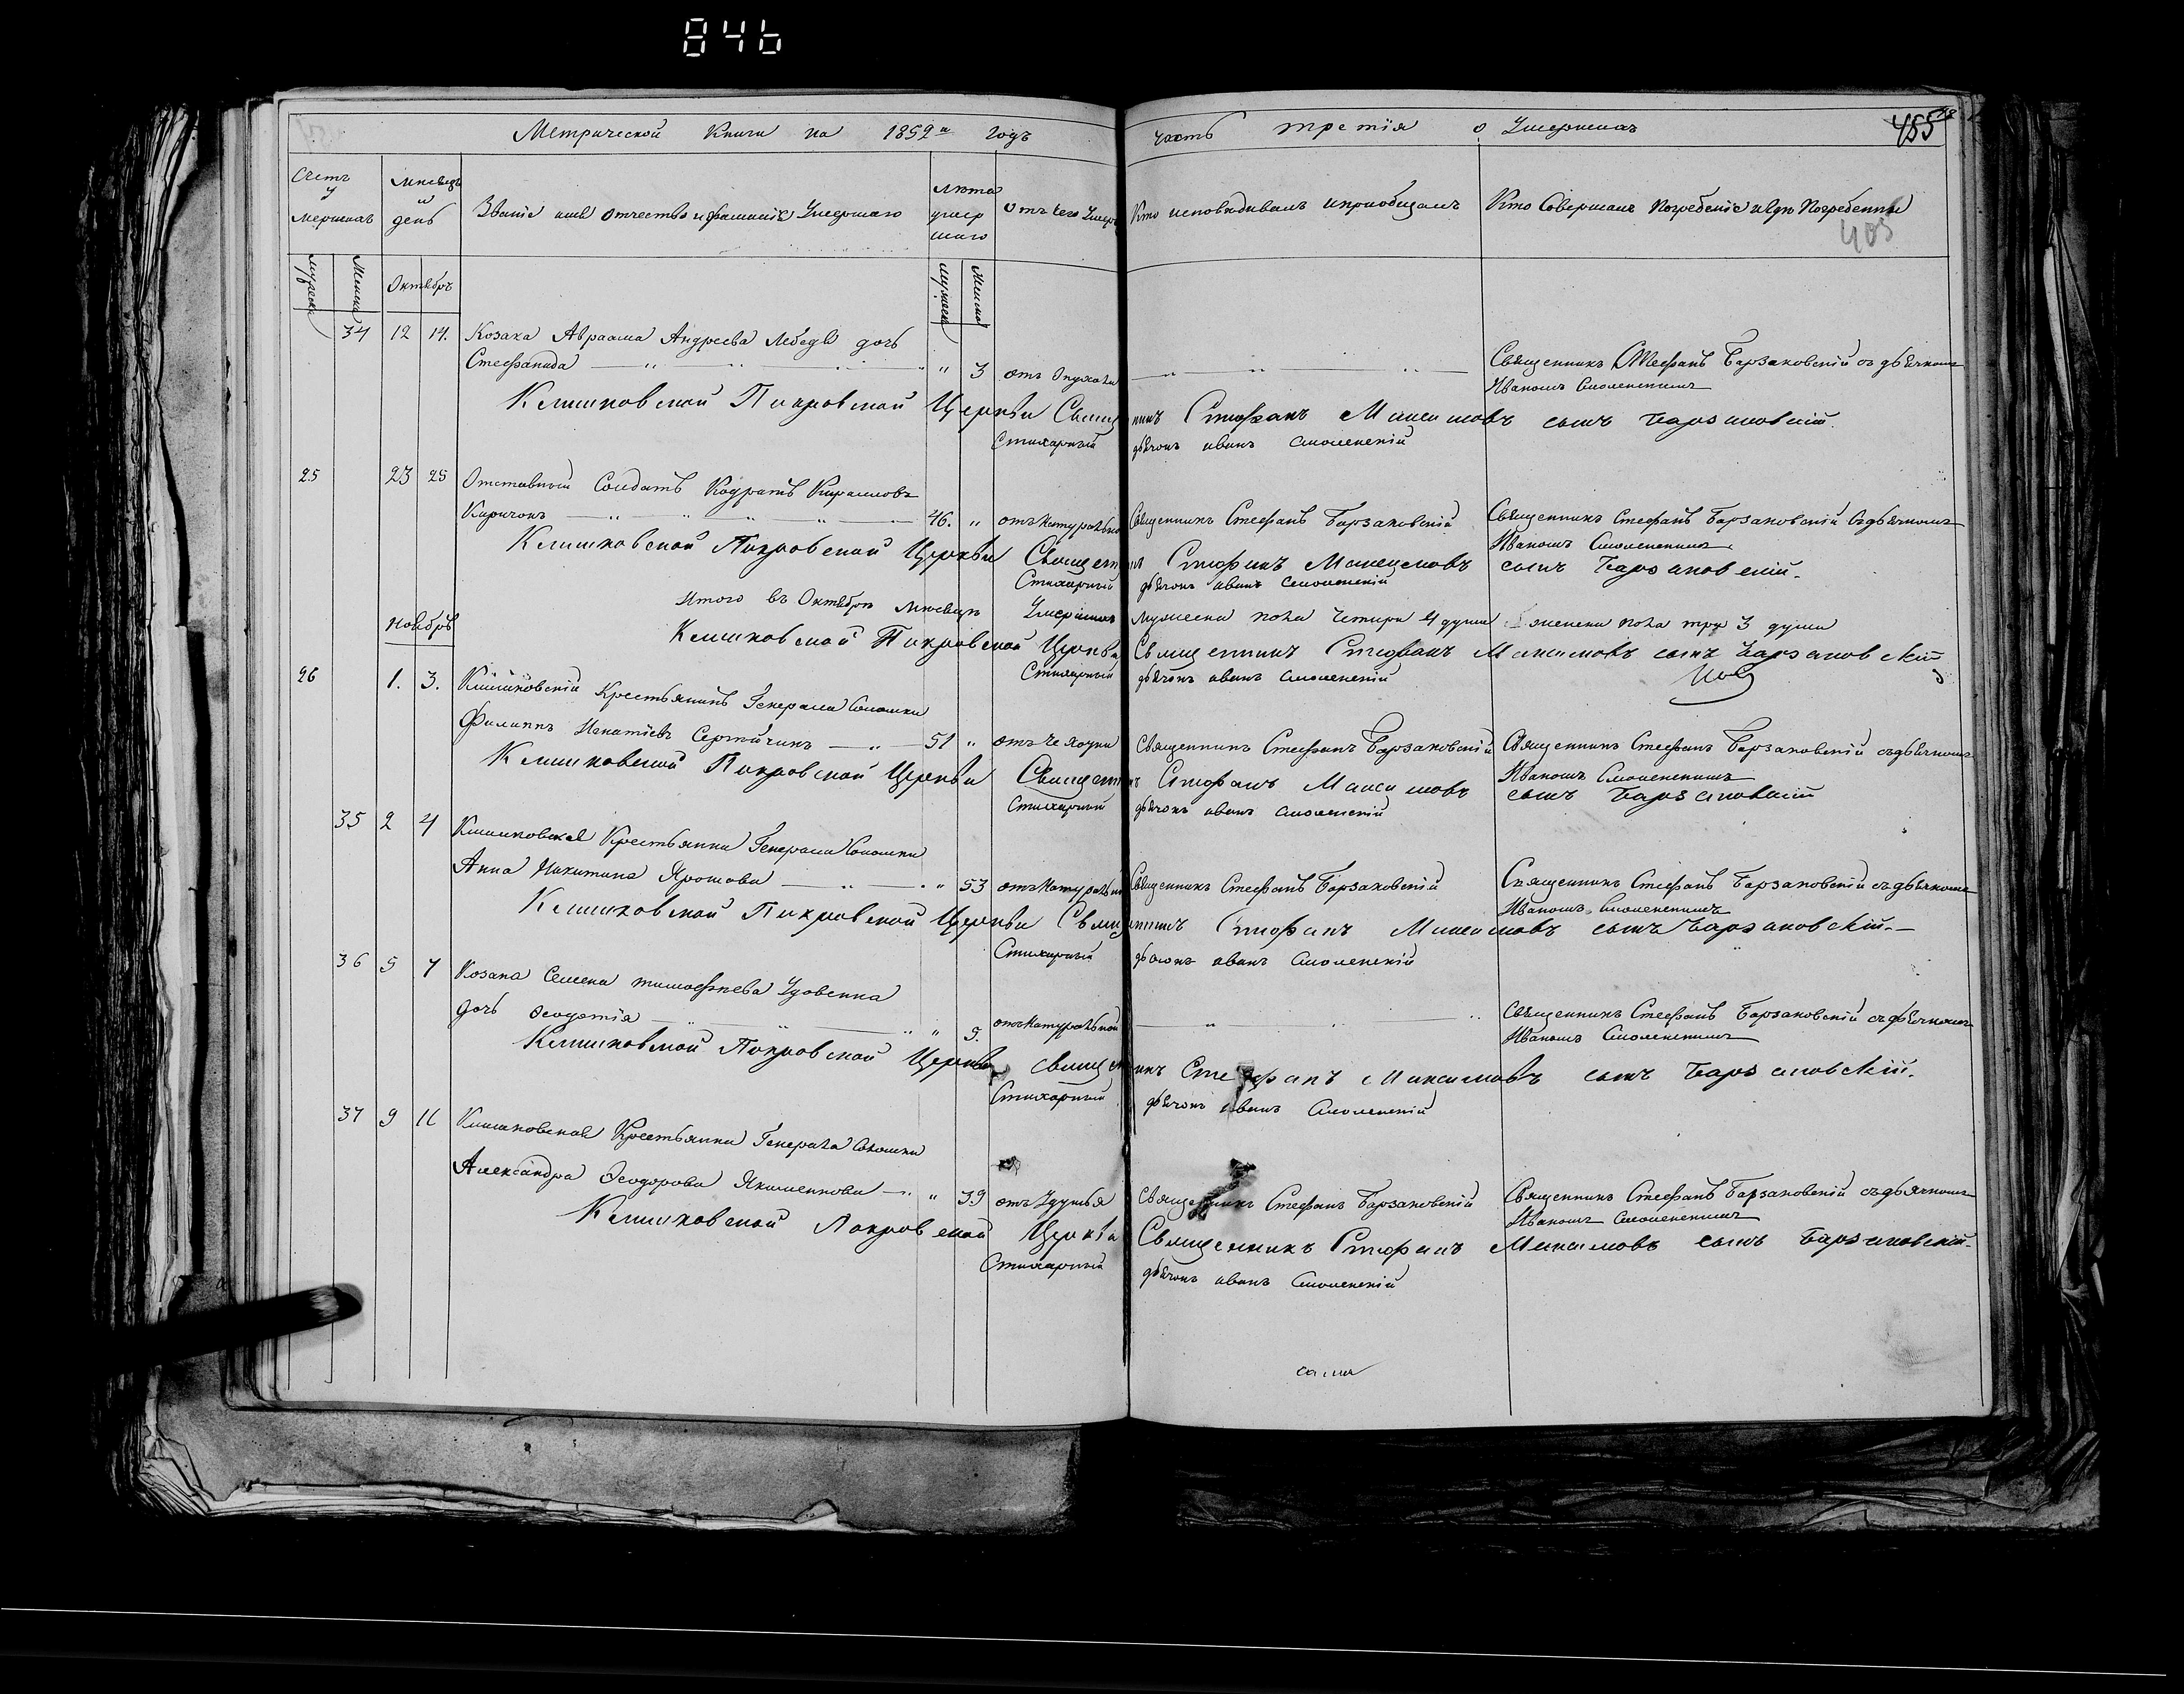 846
Метрической Книги на 1852й годъ часть третія о Умершихъ 455
Счетъ Умершихъ
Мѣсецъ и день
Званіе имя отчество и фамиліе Умершаго
Лѣта умершаго
Отъ чего Умеръ
Кто исповѣдивалъ и приобщалъ
Кто Совершалъ Погребеніе и гдѣ Погребенны
405
Мужеска Женска Октябръ Мужеск Женско
34 12 14. Козака Авраама Андреева Лебедя дочь
Стефанида " 3 отъ Опухоли Священникъ Стефанъ Барзаковскій съ дьячкомъ
Иваномъ Смоленскимъ
Клишковской Покровской Церкви Священникъ Стефанъ Максимовъ сынъ Барзаковскій
Стихарный дьячокъ иванъ Смоленскій
25 23 25 Отставный Солдатъ Кодратъ Кириловъ
Киричокъ 46. " отъ натуральной Священникъ Стефанъ Барзаковскій Священникъ Стефанъ Барзаковскій съ дьячкомъ
Иваномъ Смоленскимъ
Клишковской Покровской Церкви Священникъ Стефанъ Максимовъ сынъ Барзаковскій.
Стихарный дьячокъ иванъ Смоленскій
Итого въ Октябрѣ мѣсецѣ Умершихъ мужеска пола Четыри 4 души женска пола три 3 души
Ноябръ
Клишковской Покровской Церкви Священникъ Стефанъ Максимовъ сынъ Барзаковскій
Стихарный дьячокъ иванъ Смоленскій
26 1. 3. Клишковскій Крестьянинъ Генерала Соломки
Филиппъ Игнатіевъ Сергійчикъ 51 " отъ Чехотки Священникъ Стефанъ Барзаковскій Священникъ Стефанъ Барзаковскій съ дьячкомъ
Иваномъ Смоленскимъ
Клишковской Покровской Церкви Священникъ Стефанъ Максимовъ сынъ Барзаковскій
Стихарный дьячокъ иванъ Смоленскій
35 2 4 Клишковская Крестьянка Генерала Соломки
Анна Никитина Ярошова " 53 отъ натуральной Священникъ Стефанъ Барзаковскій Священникъ Стефанъ Барзаковскій съ дьячкомъ
Иваномъ Смоленскимъ
Клишковской Покровской Церкви Священникъ Стефанъ Максимовъ сынъ Барзаковскій.
Стихарный дьячокъ иванъ Смоленскій
36 5 7 Козака Семена тимофѣева Удовенка
дочь Ѳеодотія " 5. отъ натуральной Священникъ Стефанъ Барзаковскій съ дьячкомъ
Иваномъ Смоленскимъ
Клишковской Покровской Церкви священникъ Стефанъ Максимовъ сынъ Барзаковскій.
Стихарный дьячокъ иванъ Смоленскій
37 9 11 Клишковская Крестьянка Генерала Соломки
Александра Ѳеодорова Якименкова " 39 отъ Удушья Священникъ Стефанъ Барзаковскій Священникъ Стефанъ Барзаковскій съ дьячкомъ
Иваномъ Смоленскимъ
Клишковской Покровской Церкви Священникъ Стефанъ Максимовъ сынъ Барзаковскій.
Стихарный дьячокъ иванъ Смоленскій